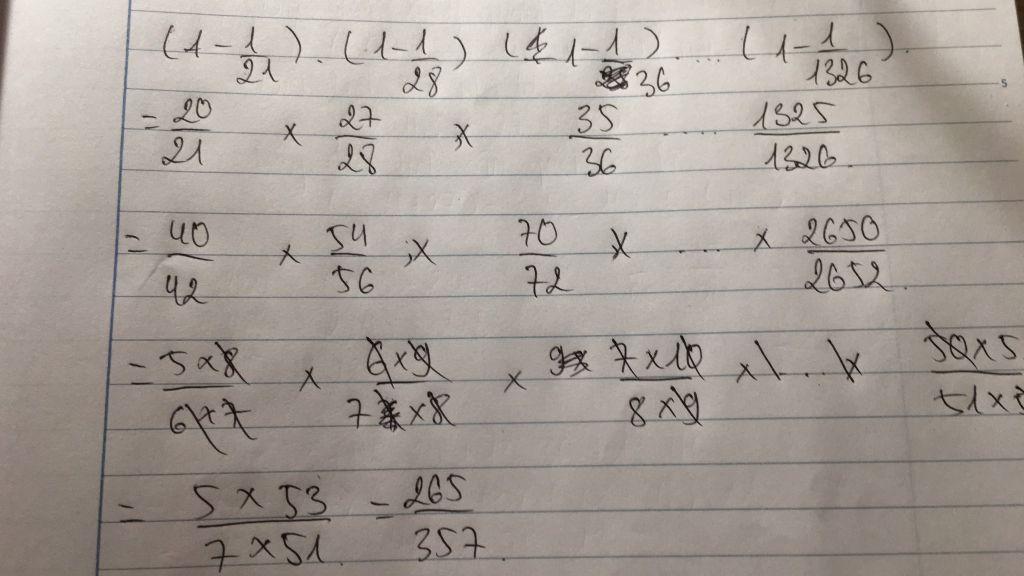 (1 - 1/21) . (1 - 1/28) (1 - 1/36) .... (1 - 1/1326).
= 20/21 × 27/28 × 35/36 ..... 1325/1326.
= 40/42 × 54/56 × 70/72 × .... × 2650/2652.
= 5×8/6×7 × 6×9/7×8 × 7×10/8×9 × ... × 50×5/51×
= 5×53/7×51 = 265/357.